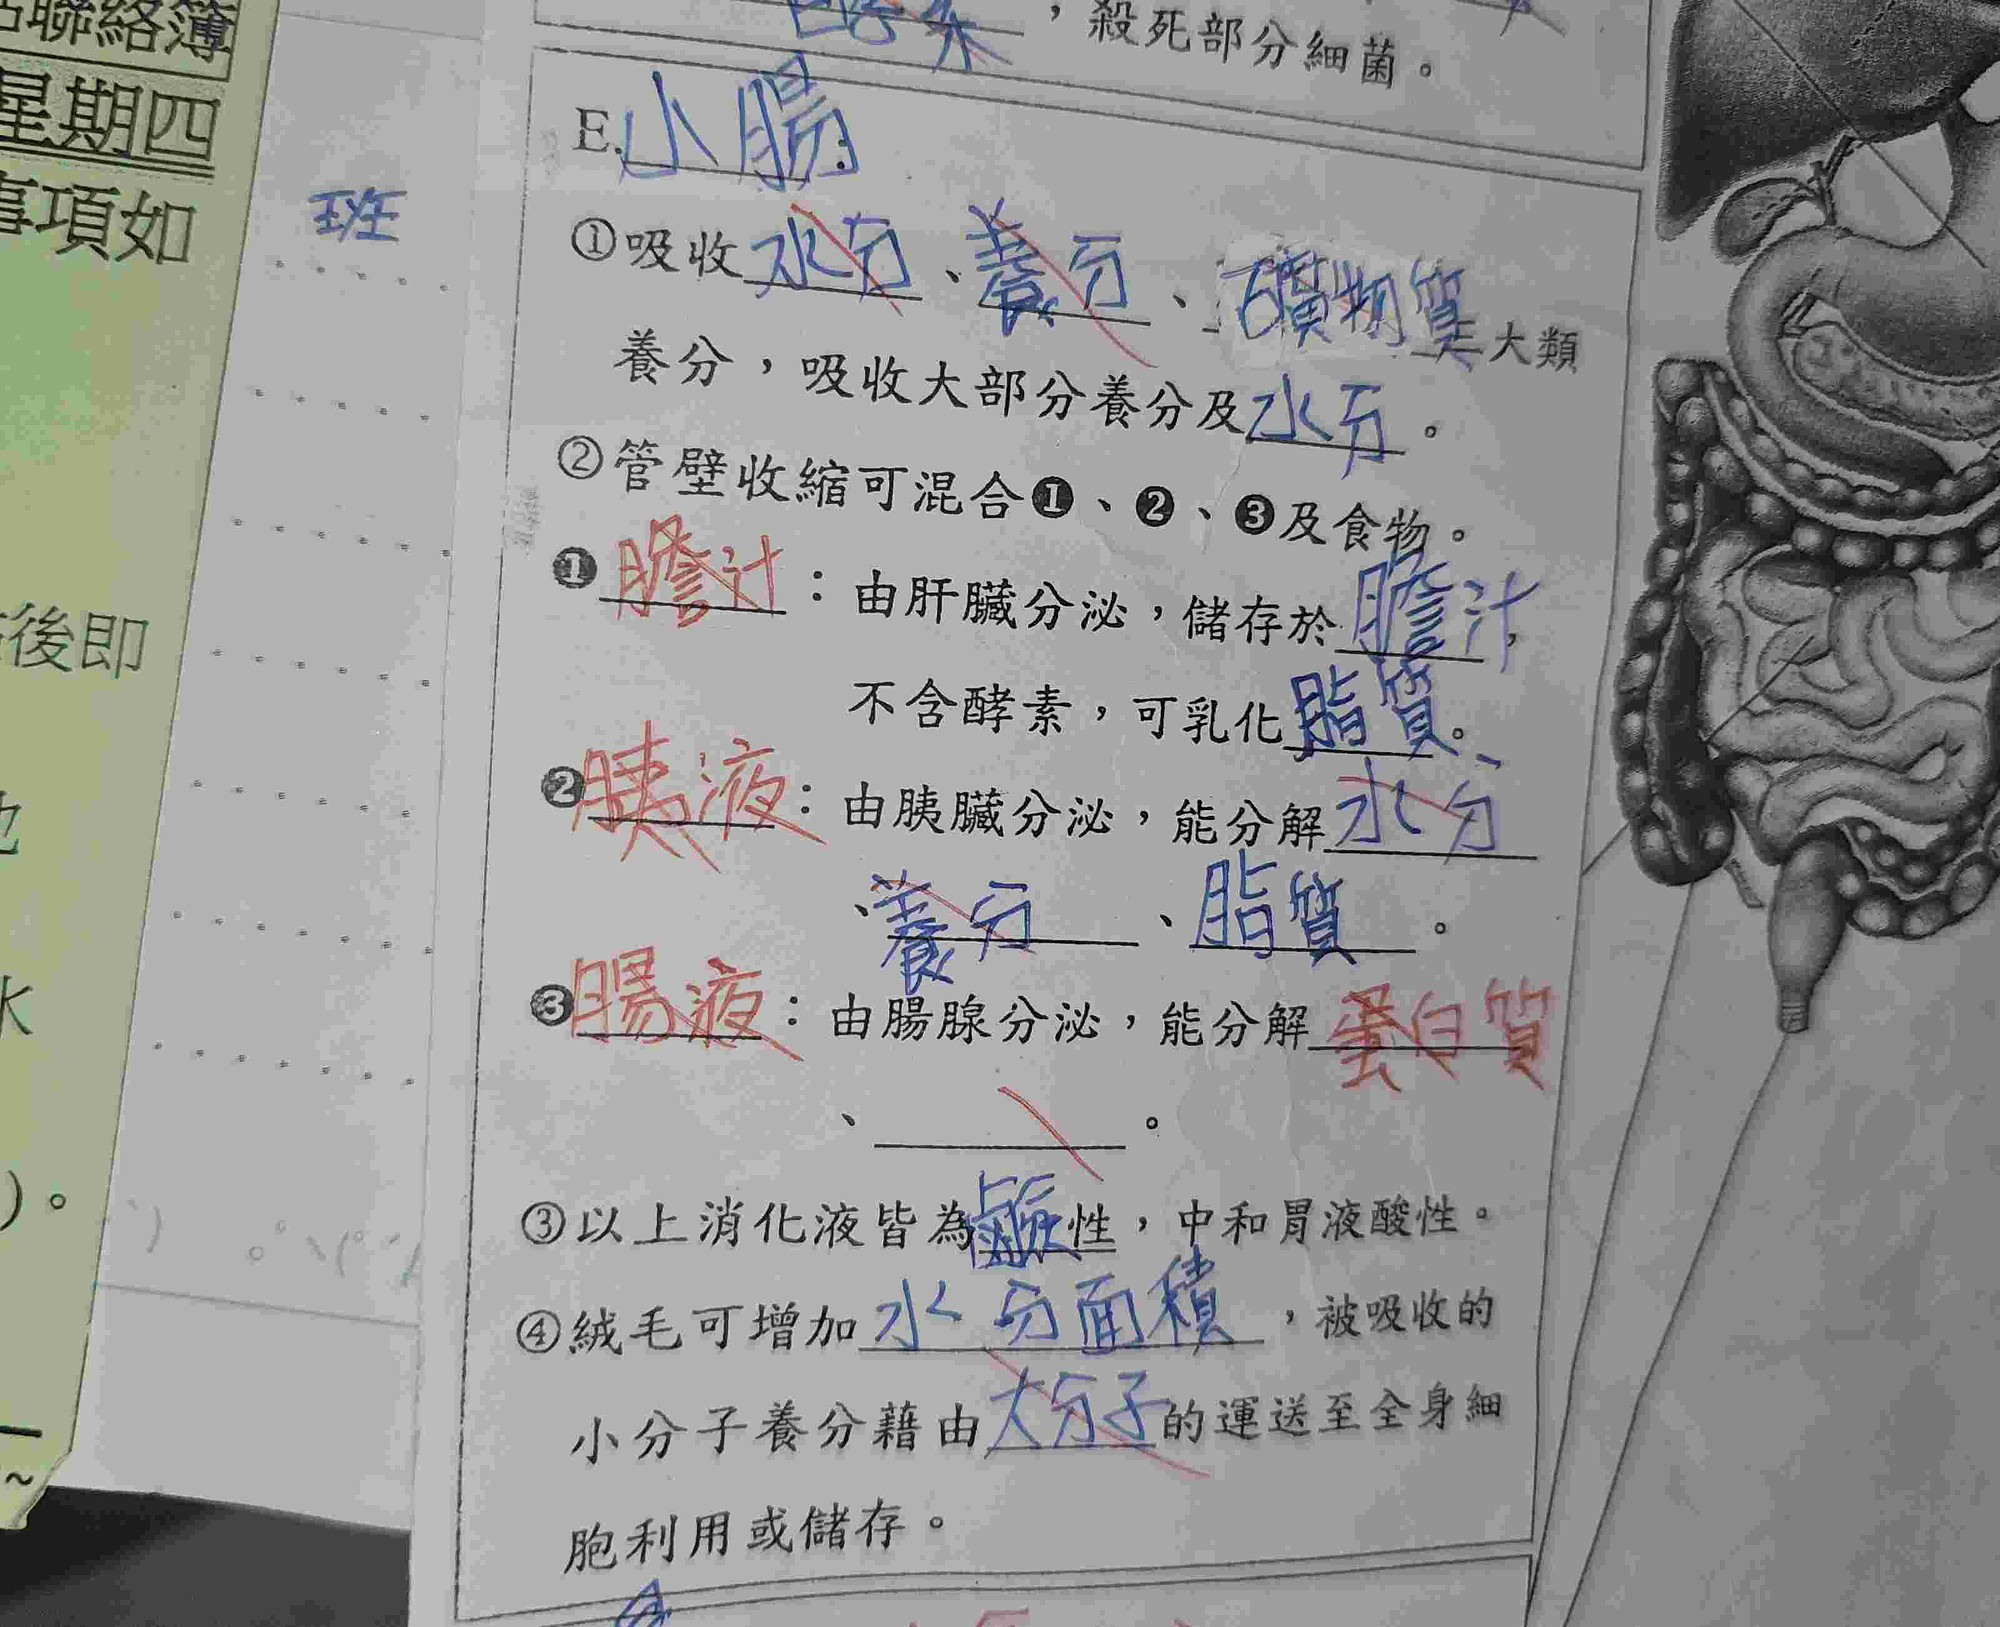 聯絡簿
星期四
事項如
後即
水
)。
~
班
酵素,殺死部分細菌。
E.小腸
①吸收水分、養分、礦物質大類
養分,吸收大部分養分及水分。
②管壁收縮可混合❶、❷、❸及食物。
❶膽汁:由肝臟分泌,儲存於膽汁,
不含酵素,可乳化脂質。
❷胰液:由胰臟分泌,能分解水分
、養分、脂質。
❸腸液:由腸腺分泌,能分解蛋白質
、。
③以上消化液皆為鹼性,中和胃液酸性。
④絨毛可增加水分面積,被吸收的
小分子養分藉由大分子的運送至全身細
胞利用或儲存。